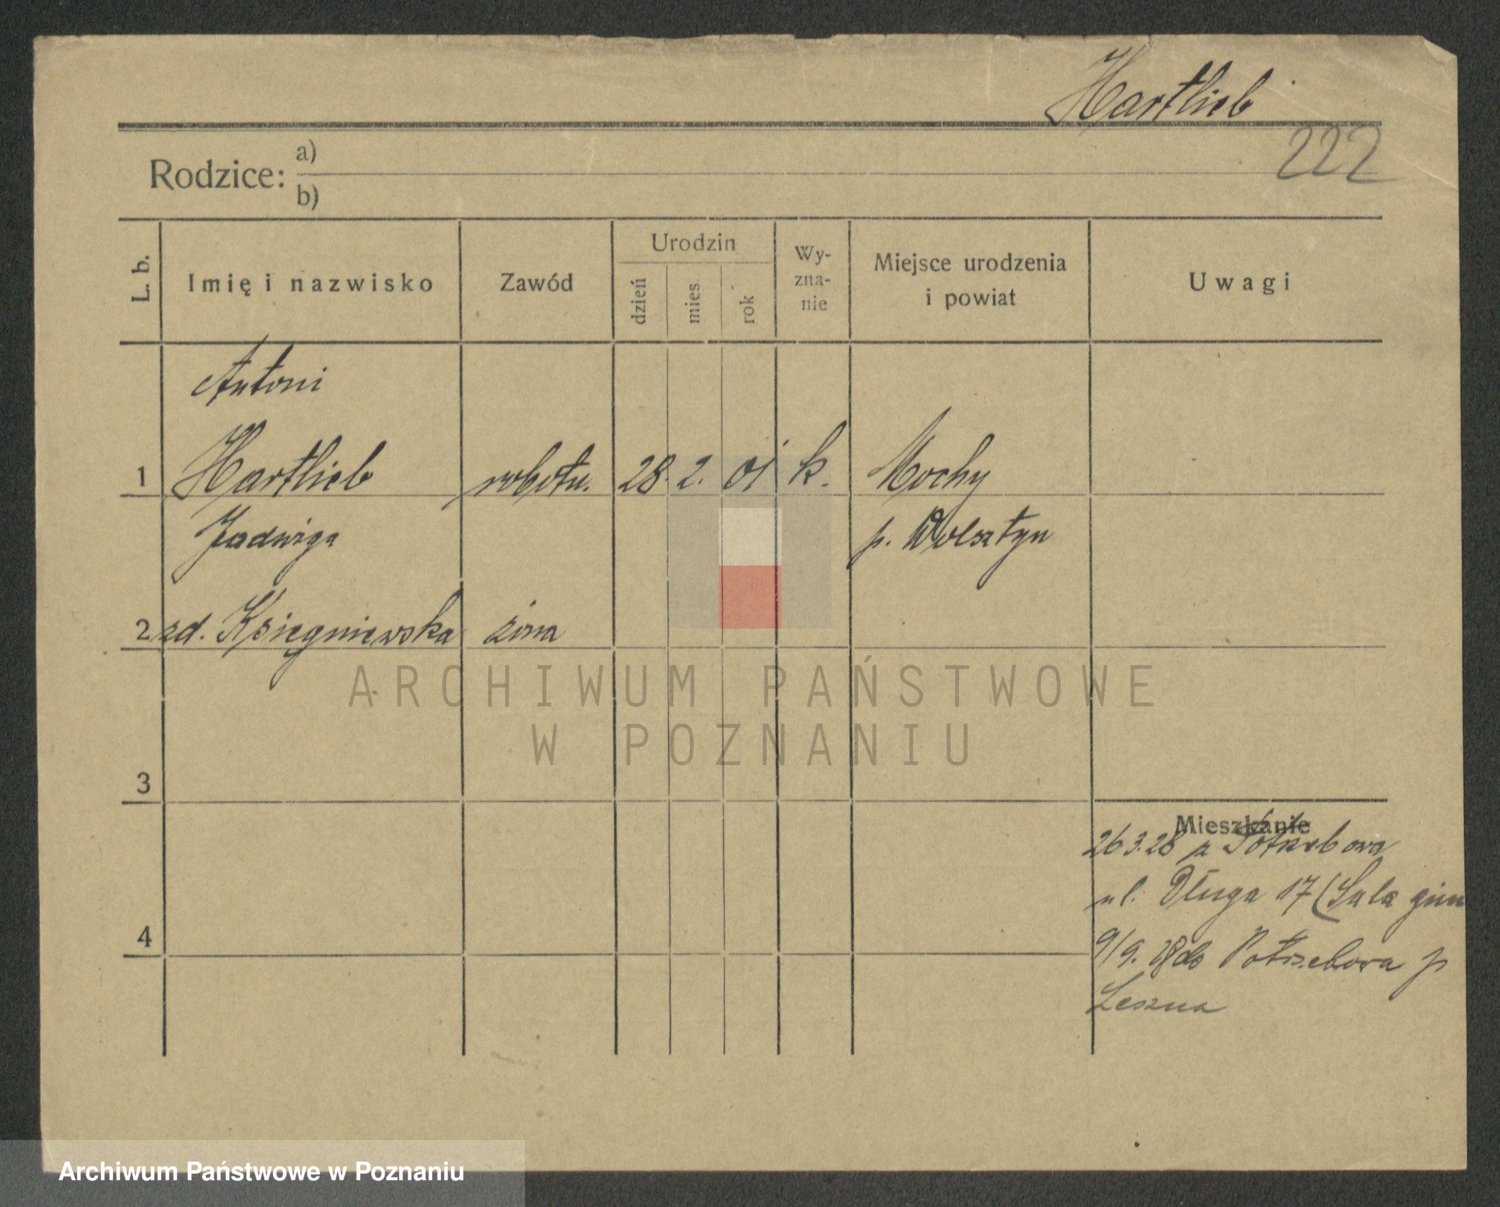 Hartlieb
222
Rodzice: a)
b)
L. b.
Imię i nazwisko
Zawód
Urodzin
dzień
mies.
rok
Wy-
zna-
nie
Miejsce urodzenia
i powiat
Uwagi
Antoni
1 Hartlieb robotn. 28. 2. 01 k. Mochy
Jadwiga p. Wolsztyn
2 zd. Księgniewska żona
3
4
Mieszkanie
26 3.28 z Potrzebowa
ul. Długa 17 (Sala gim
9/9. 28 do Potrzebowa p
Leszna
ARCHIWUM PAŃSTWOWE
W POZNANIU
Archiwum Państwowe w Poznaniu